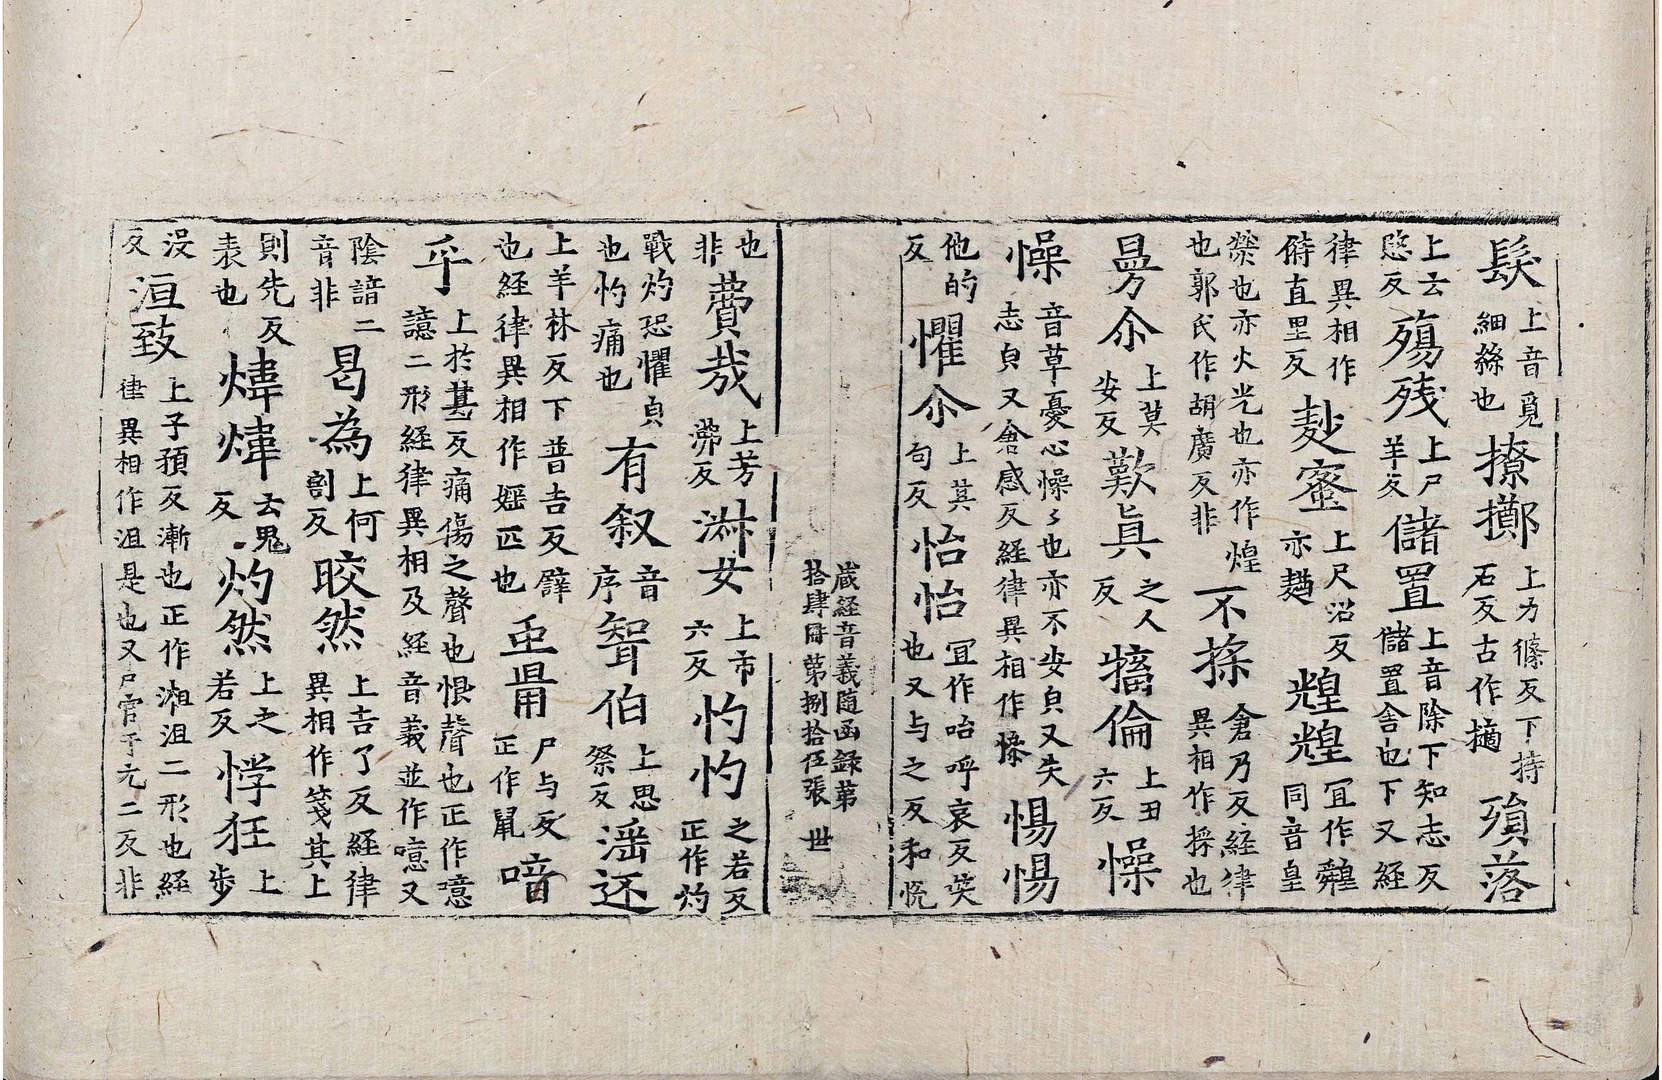 髮上音覓細絲也撩擲上力絛反下持石反古作擿殞落
上云愍反殤残上尸羊反儲置上音除下知志反儲置舍也下又經
律異相作偫直里反麨蜜上尺沼反亦麵煌煌宜作韑同音皇
榮也亦火光也亦作煌也郭氏作胡廣反非不搽倉乃反経律異相作採也
曼尒上莫安反歎真之人反㹖倫上丑六反懆
懆音草憂心懆〻也亦不安皃又失志皃又倉感反経律異相作㥆惕惕
他的反懼尒上其句反怡怡宜作咍呼哀反笑也又与之反和悅
蔵経音義随函録第
拾肆冊第捌拾伍張 世
也非費哉上芳沸反淋女上市六反灼灼之若反正作灼
戰灼恐懼皃也灼痛也有叙音序聟伯上思祭反滛还
上羊林反下普吉反躃也経律異相作婬匹也𤱶𤲞尸与反正作鼠噾
乎上於其反痛傷之聲也恨聲也正作噫譩二形経律異相及経音義並作噫又
陰諳二音非曷為上何割反晈然上吉了反経律異相作笺其上
則先反表也煒煒云鬼反灼然上之若反悖狂上步
沒反洹致上子預反漸也正作沮沮二形也経律異相作沮是也又戶官于元二反非